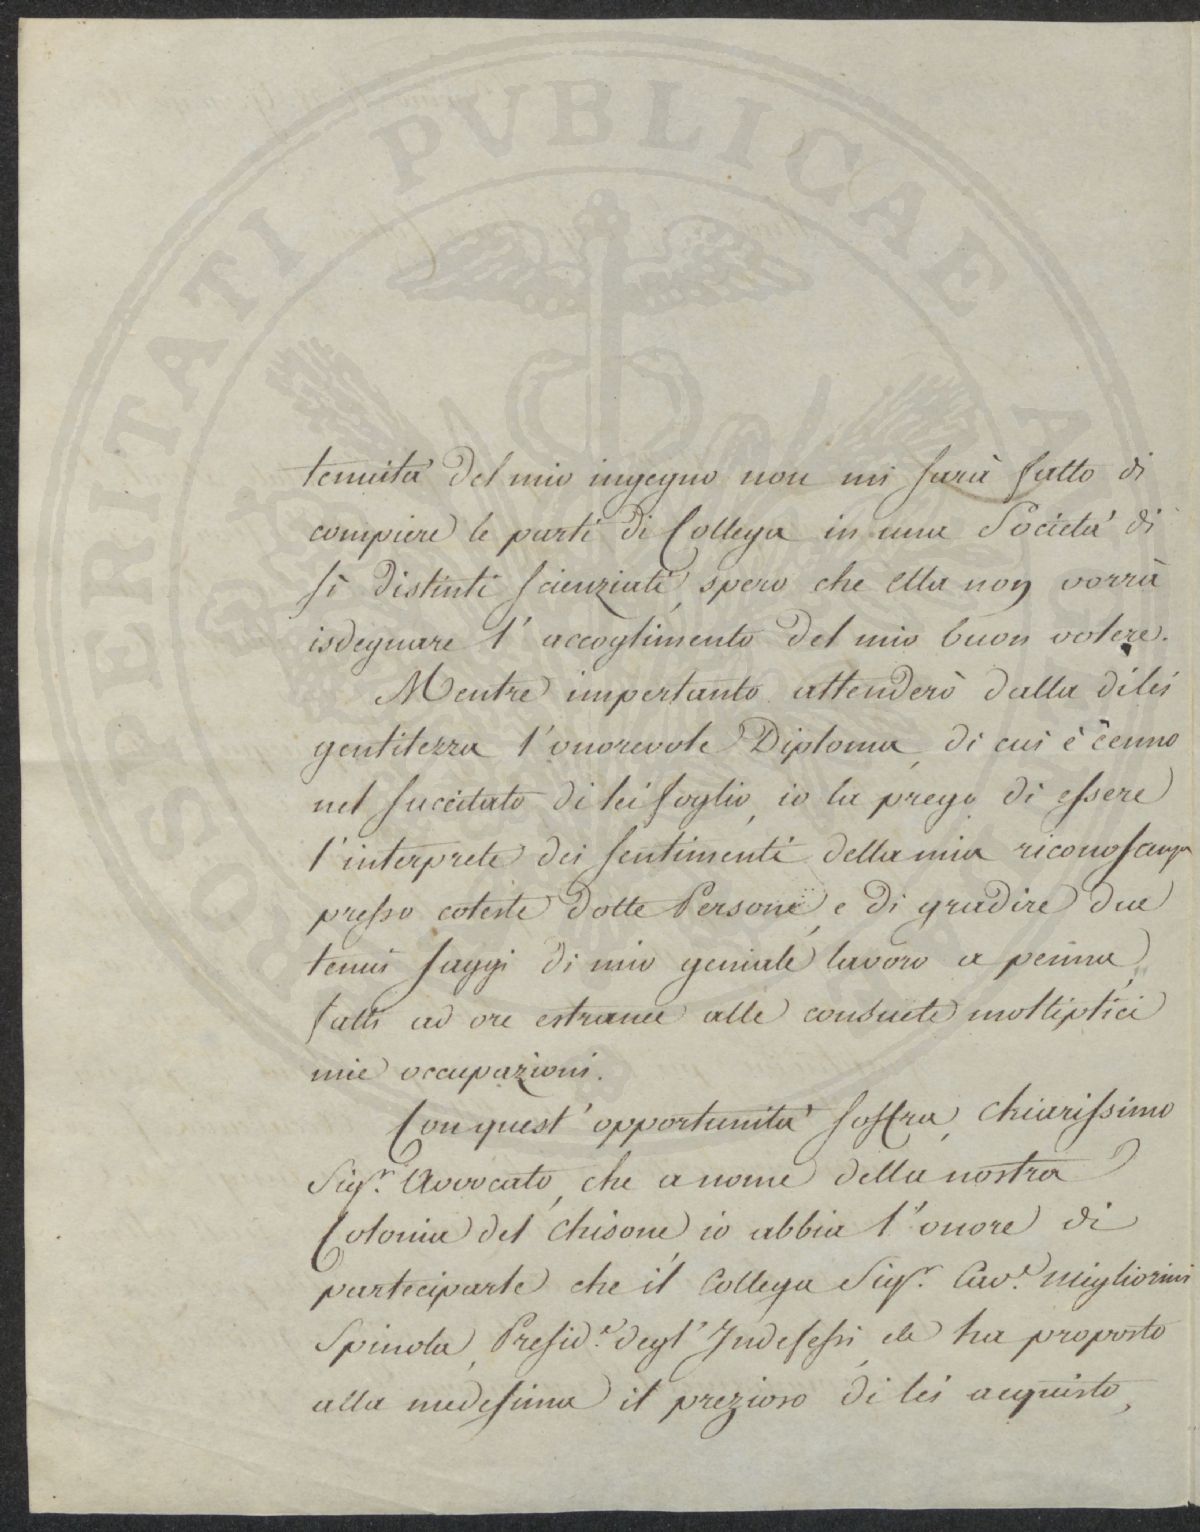 PROSPERITATI PVBLICAE A
tenuità del mio ingegno non mi sarà fatto di
compiere le parti di Collega in una Società di
sì distinti scienziati, spero che Ella non vorrà
isdegnare l'accoglimento del mio buon volere.
Mentre impertanto attenderò dalla di lei
gentilezza l'onorevole Diploma, di cui è cenno
nel succitato di lei foglio, io la prego di essere
l'interprete dei sentimenti della mia riconoscenza
presso coteste dotte Persone, e di gradire due
tenui saggi di mio geniale lavoro a penna,
fatti ad ore estranee alle consuete moltiplici
mie occupazioni.
Con quest'opportunità soffra, chiarissimo
Sigr. Avvocato, che a nome della nostra
Colonia del Chisone io abbia l'onore di
parteciparle che il Collega Sigr. Cave. Migliorini
Spinola, Preside. degl'Indefessi, ha proposto
alla medesima il prezioso di lei acquisto,